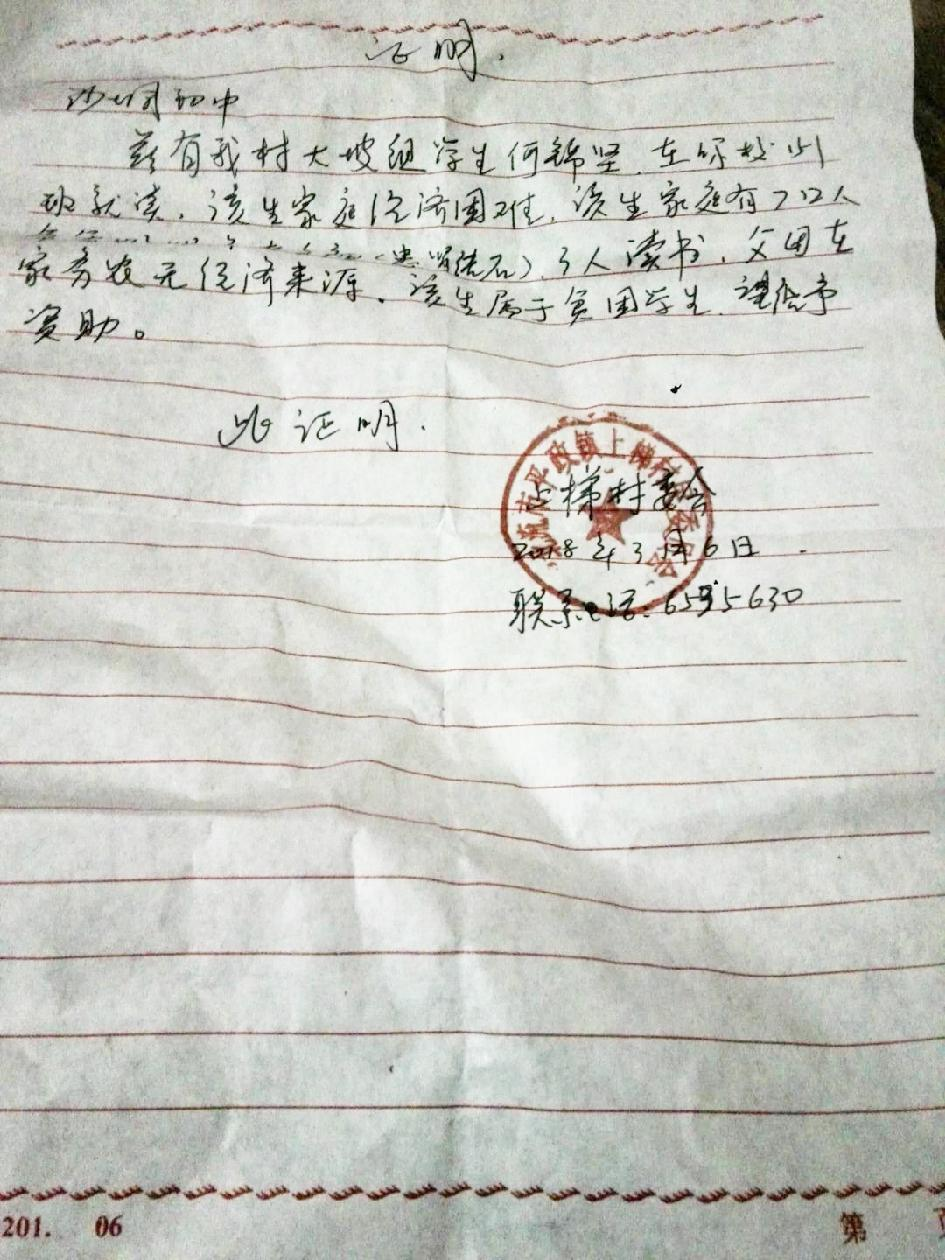 证明.
沙垌初中
兹有我村大坡组学生何锦坚,在你校
班就读,该生家庭经济困难,该生家庭有7口人
结石),3人读书,父母在
家务农无经济来源,该生属于贫困学生,望给予
资助。
此证明.
平政镇上梯村委员会
上梯村委会
2018年3月6日.
联系电话:
201. 06
第